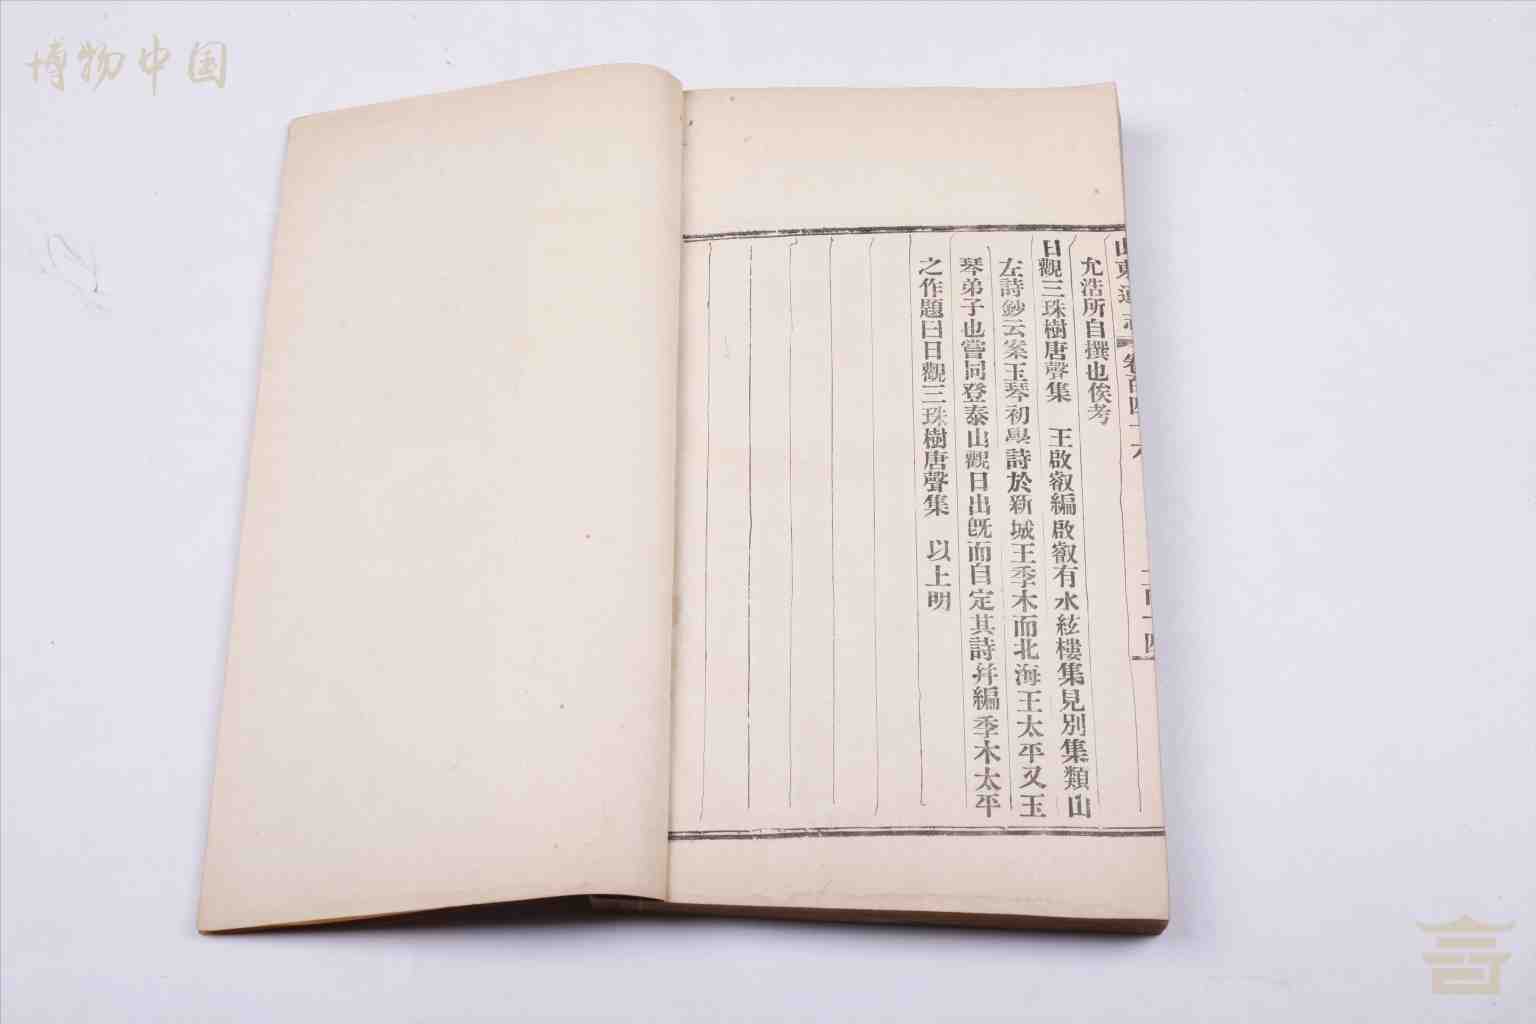 博物中国
山東通志 卷百四十六 二百十四
允浩所自撰也俟考
日觀三珠樹唐聲集　王啟叡編啟叡有水絃樓集見別集類山
左詩鈔云案玉琴初學詩於新城王季木而北海王太平又玉
琴弟子也嘗同登泰山觀日出旣而自定其詩幷編季木太平
之作題曰日觀三珠樹唐聲集　以上明